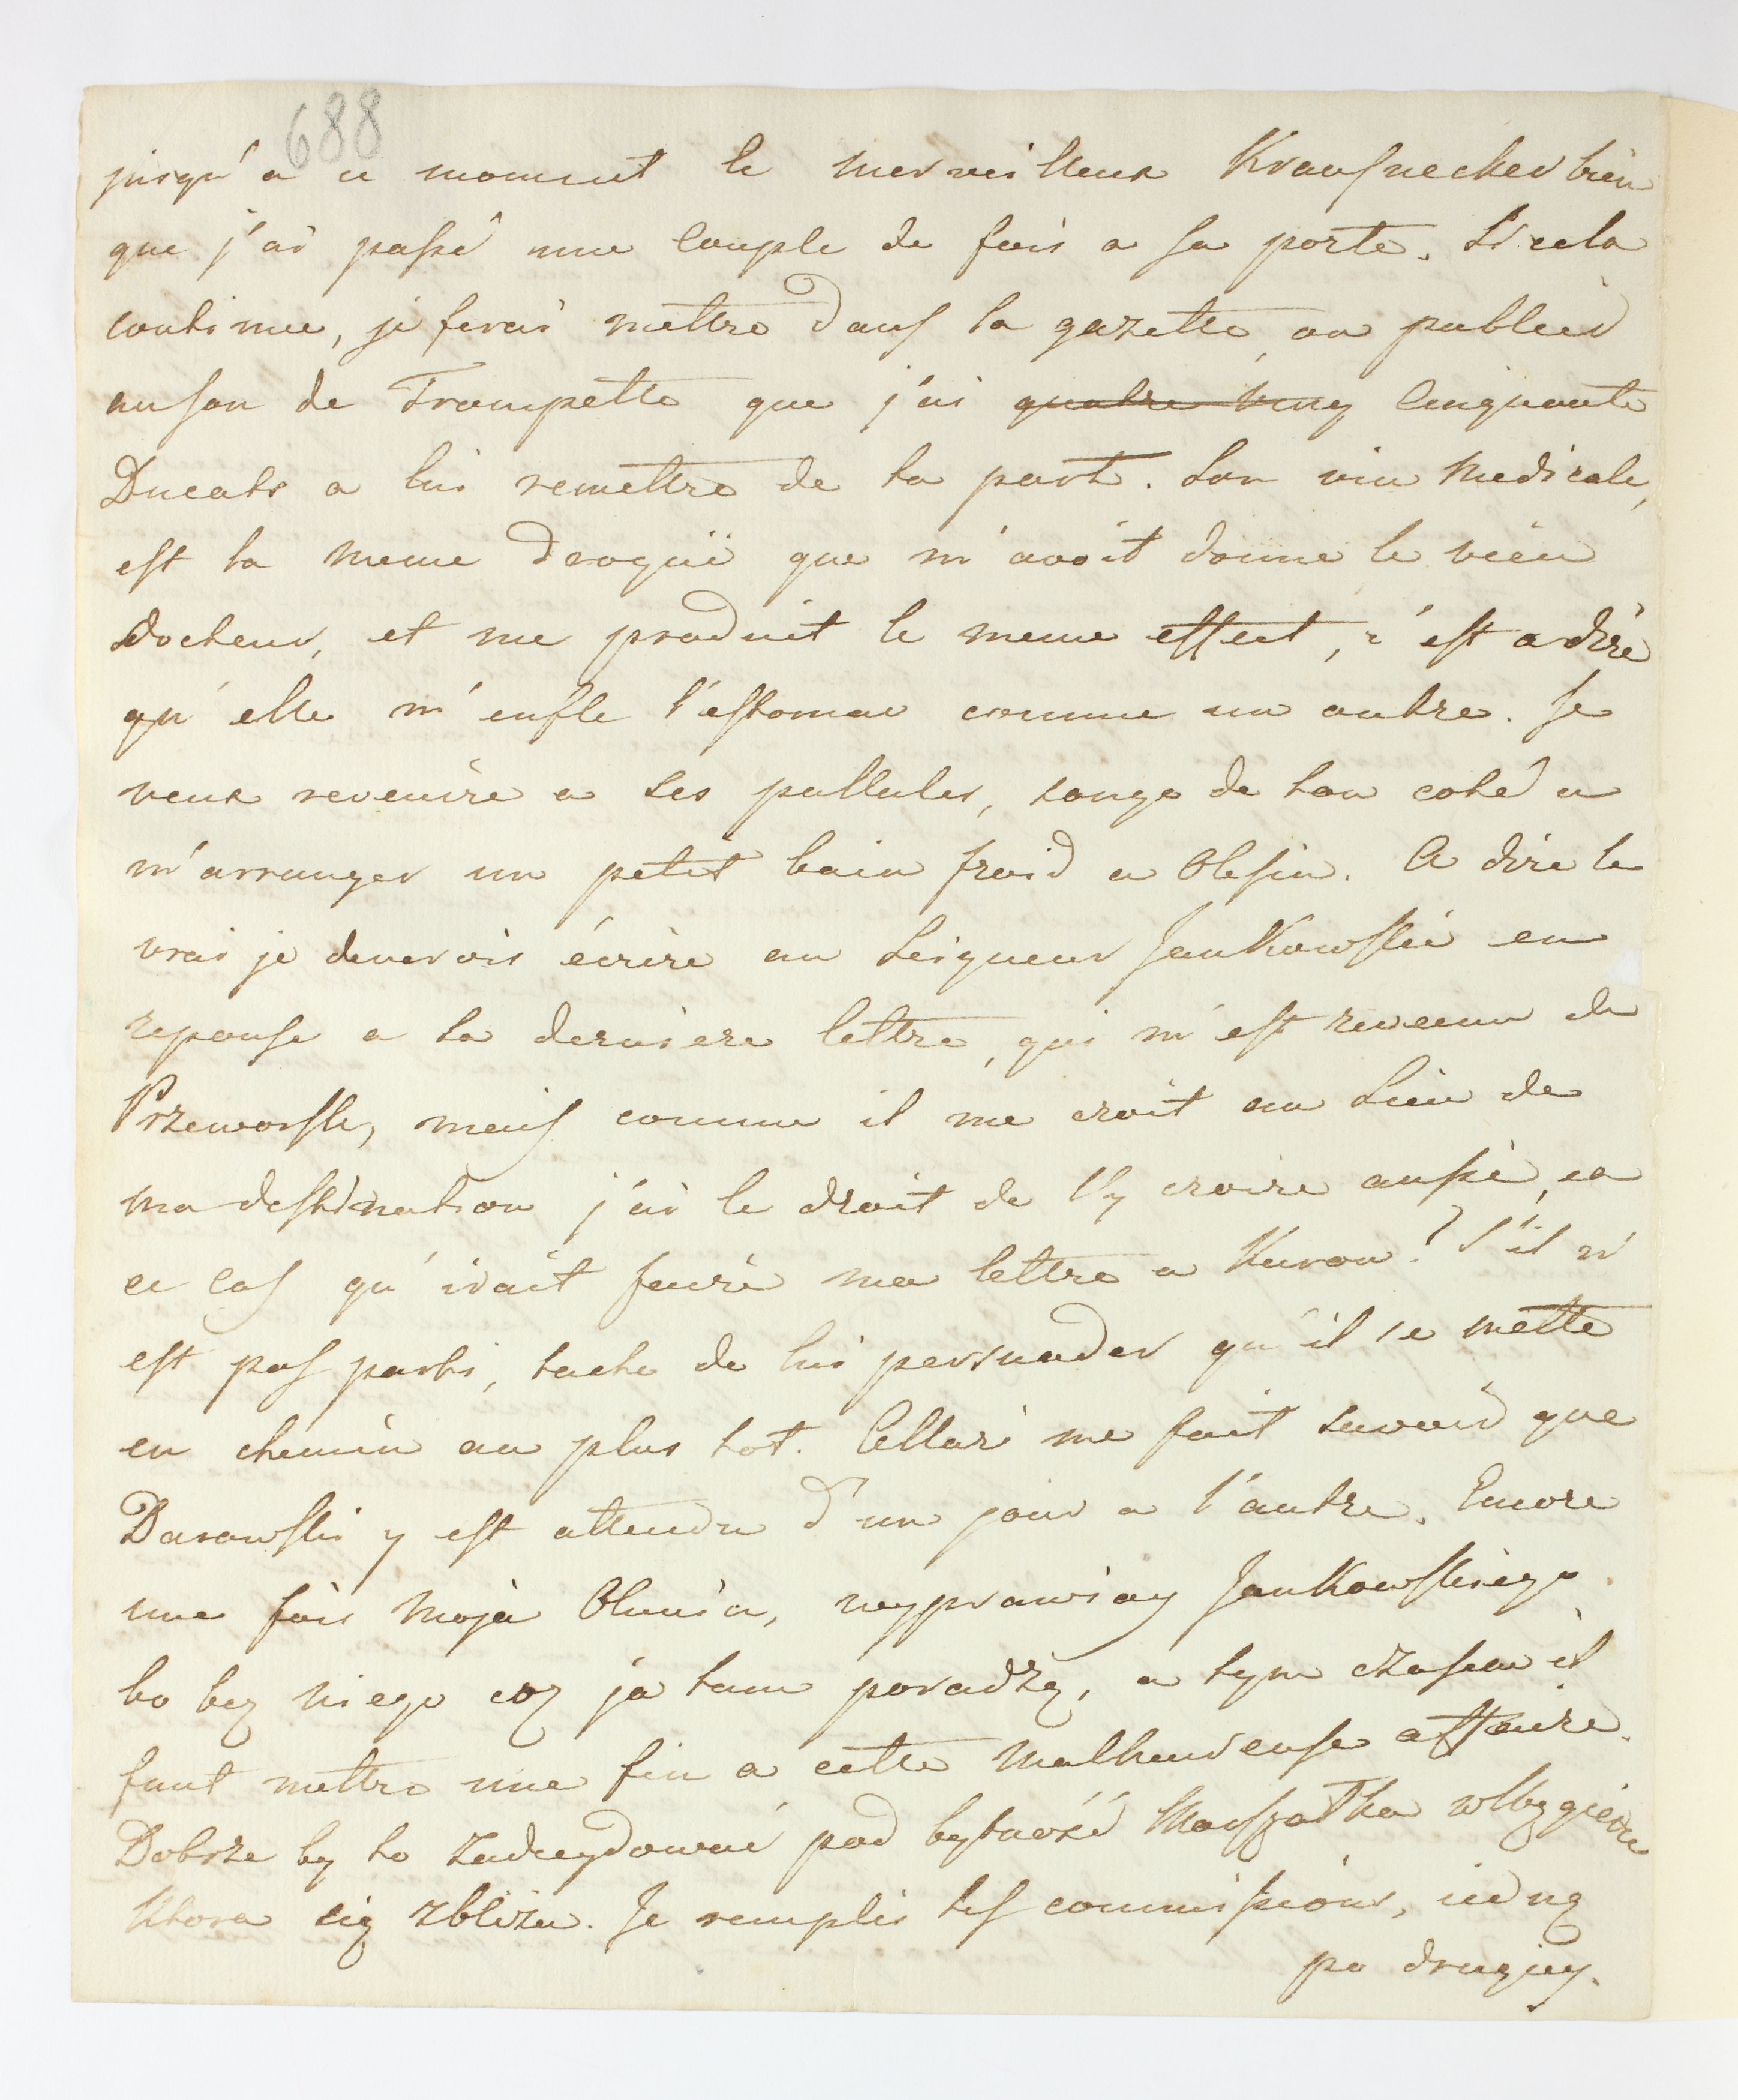 688
jusqu'a ce moment le merveilleux Krausnecker bien
que j'ai passé une couple de fois a sa porte. Si cela
continue, je ferai mettre dans la gazette, ou publier
au son de Trompette que j'ai quatre ving Cinquante
Ducats a lui remettre de ta part. Son vin Medicale,
est la meme drogüe que m'avoit donne le vieu
Docteur, et me produit le meme effect, c'est a dire
qu'elle m'enfle l'estomac comme un autre. Je
veux revenire a ses pullules, songe de ton coté a
m'arranger un petit bain froid a Olesin. A dire le
vrai je deverois écrire au Seigneur Jankowskie en
reponse a ta derniere lettre, qui m'est revenu de
Przeworsk, mais comme il me croit au Lieu de
ma destination j'ai le droit de l'y croire aussi, en
ce cas qu'irait faire ma lettre a Kurow? S'il n'
est pas parti, tache de lui persuader qu'il se mette
en chemin au plus tot. Cellari me fait savoir que
Darowski y est attendu d'un jour a l'autre. Encore
une fois Moja Olunia, wyprawiay Jankowskiego
bo bez niego coz ja tam poradzę, a tym czasem il
faut mettre une fin a cette Malheureuse affaire.
Dobrze by to zadecydować pod bytność Marszałka
Ktora się zbliza. Je remplis tes commissions, iedną
po drugiey.